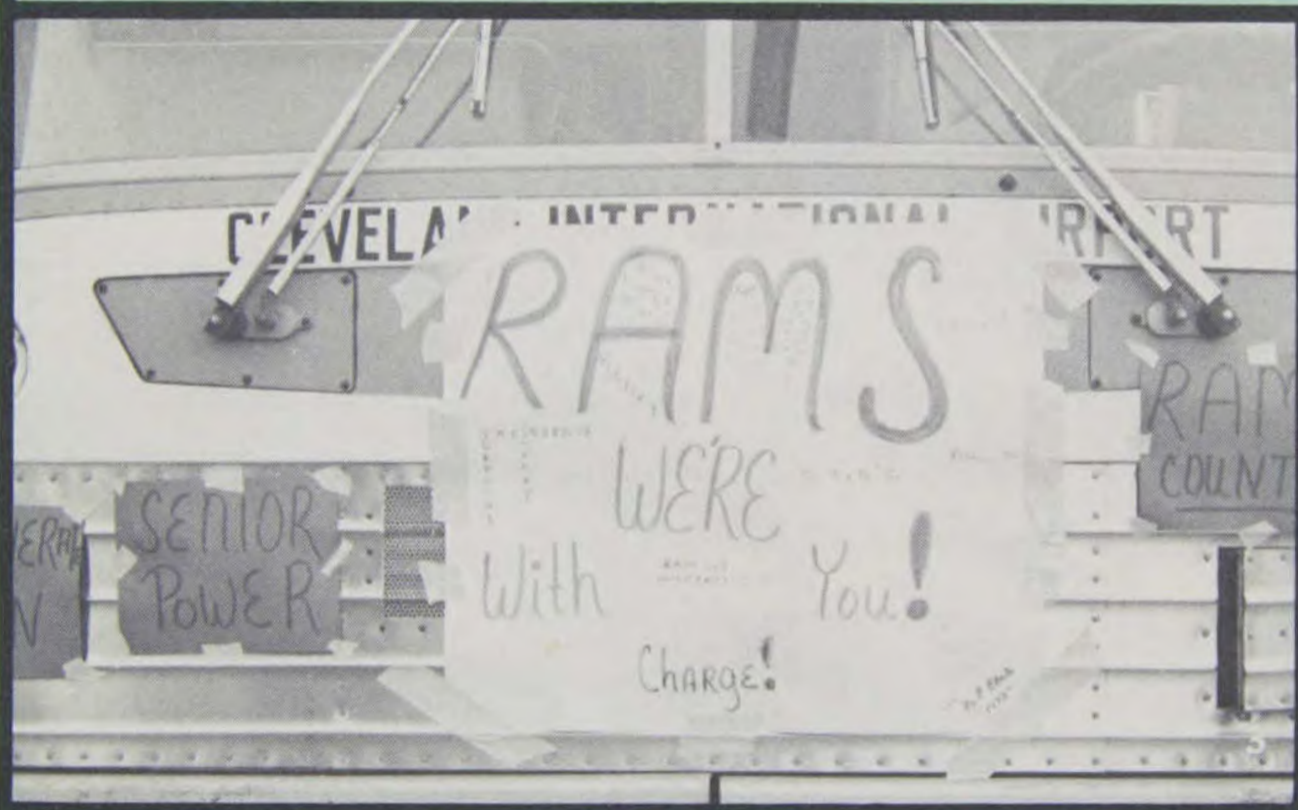 CLEVELAND INTERNATIONAL AIRPORT
RAMS
WE'RE
With You!
Charge!
SENIOR
POWER
RAM
COUNT
N
5